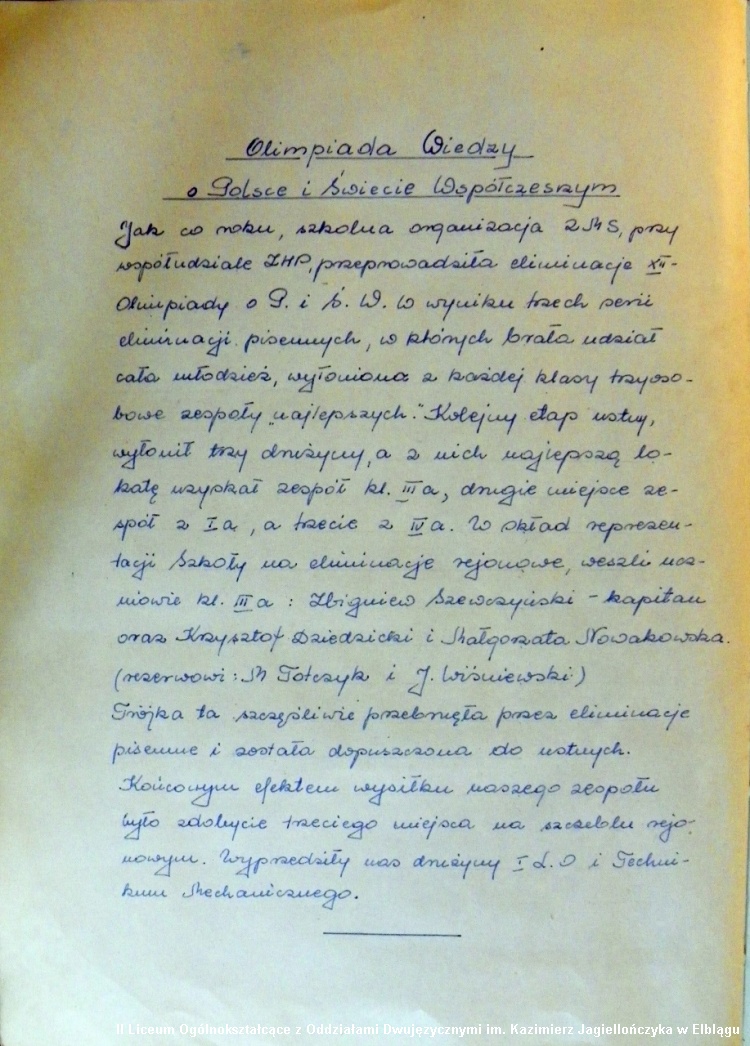 Olimpiada Wiedzy
o Polsce i Świecie Współczesnym
Jak co roku, szkolna organizacja ZMS, przy
współudziale ZHP, przeprowadziła eliminacje XII-
Olimpiady o P. i Ś. W. W wyniku trzech serii
eliminacji pisemnych, w których brała udział
cała młodzież, wyłoniono z każdej klasy trzyoso-
bowe zespoły "najlepszych". Kolejny etap ustny,
wyłonił trzy drużyny, a z nich najlepszą lo-
katę uzyskał zespół kl. IIIa, drugie miejsce ze-
spół z Ia, a trzecie z IVa. W skład reprezen-
tacji Szkoły na eliminacje rejonowe, weszli ucz-
niowie kl. IIIa: Zbigniew Szewczyński - kapitan
oraz Krzysztof Dziedzicki i Małgorzata Nowakowska.
(rezerwowi: M Tołczyk i J. Wiśniewski)
Trójka ta szczęśliwie przebrnęła przez eliminacje
pisemne i została dopuszczona do ustnych.
Końcowym efektem wysiłku naszego zespołu
było zdobycie trzeciego miejsca na szczeblu rejo-
nowym. Wyprzedziły nas drużyny I L.O i Techni-
kum Mechanicznego.
II Liceum Ogólnokształcące z Oddziałami Dwujęzycznymi im. Kazimierz Jagiellończyka w Elblągu